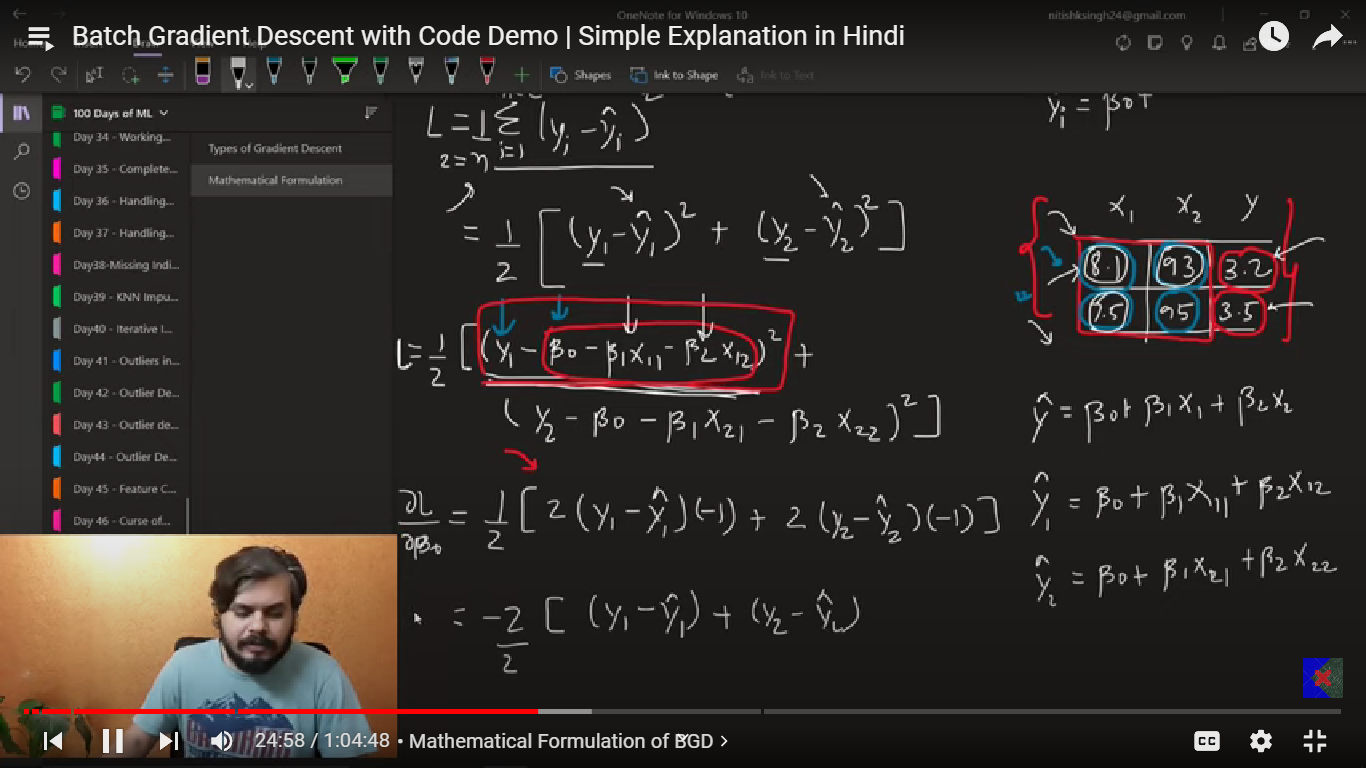 OneNote for Windows 10
nitishksingh24@gmail.com
Batch Gradient Descent with Code Demo | Simple Explanation in Hindi
Shapes
Ink to Shape
Ink to Text
100 Days of ML
Day 34 - Working...
Day 35 - Complete...
Day 36 - Handling...
Day 37 - Handling...
Day38-Missing Indi...
Day39 - KNN Impu...
Day40 - Iterative I...
Day 41 - Outliers in...
Day 42 - Outlier De...
Day 43 - Outlier de...
Day44 - Outlier De...
Day 45 - Feature C...
Day 46 - Curse of...
Types of Gradient Descent
Mathematical Formulation
L = 1/2=n Σ i=1 (yi - ŷi)²
= 1/2 [(y₁ - ŷ₁)² + (y₂ - ŷ₂)²]
L = 1/2 [(y₁ - β0 - β₁x₁₁ - β₂x₁₂)² +
(y₂ - β0 - β₁x₂₁ - β₂x₂₂)²]
∂L/∂β0 = 1/2 [2(y₁ - ŷ₁)(-1) + 2(y₂ - ŷ₂)(-1)]
= -2/2 [(y₁ - ŷ₁) + (y₂ - ŷ₂)
ŷi = β0+
x₁ x₂ y
8.1 93 3.2
7.5 95 3.5
ŷ = β0 + β₁x₁ + β₂x₂
ŷ₁ = β0 + β₁x₁₁ + β₂x₁₂
ŷ₂ = β0 + β₁x₂₁ + β₂x₂₂
24:58 / 1:04:48 • Mathematical Formulation of BGD >
CC